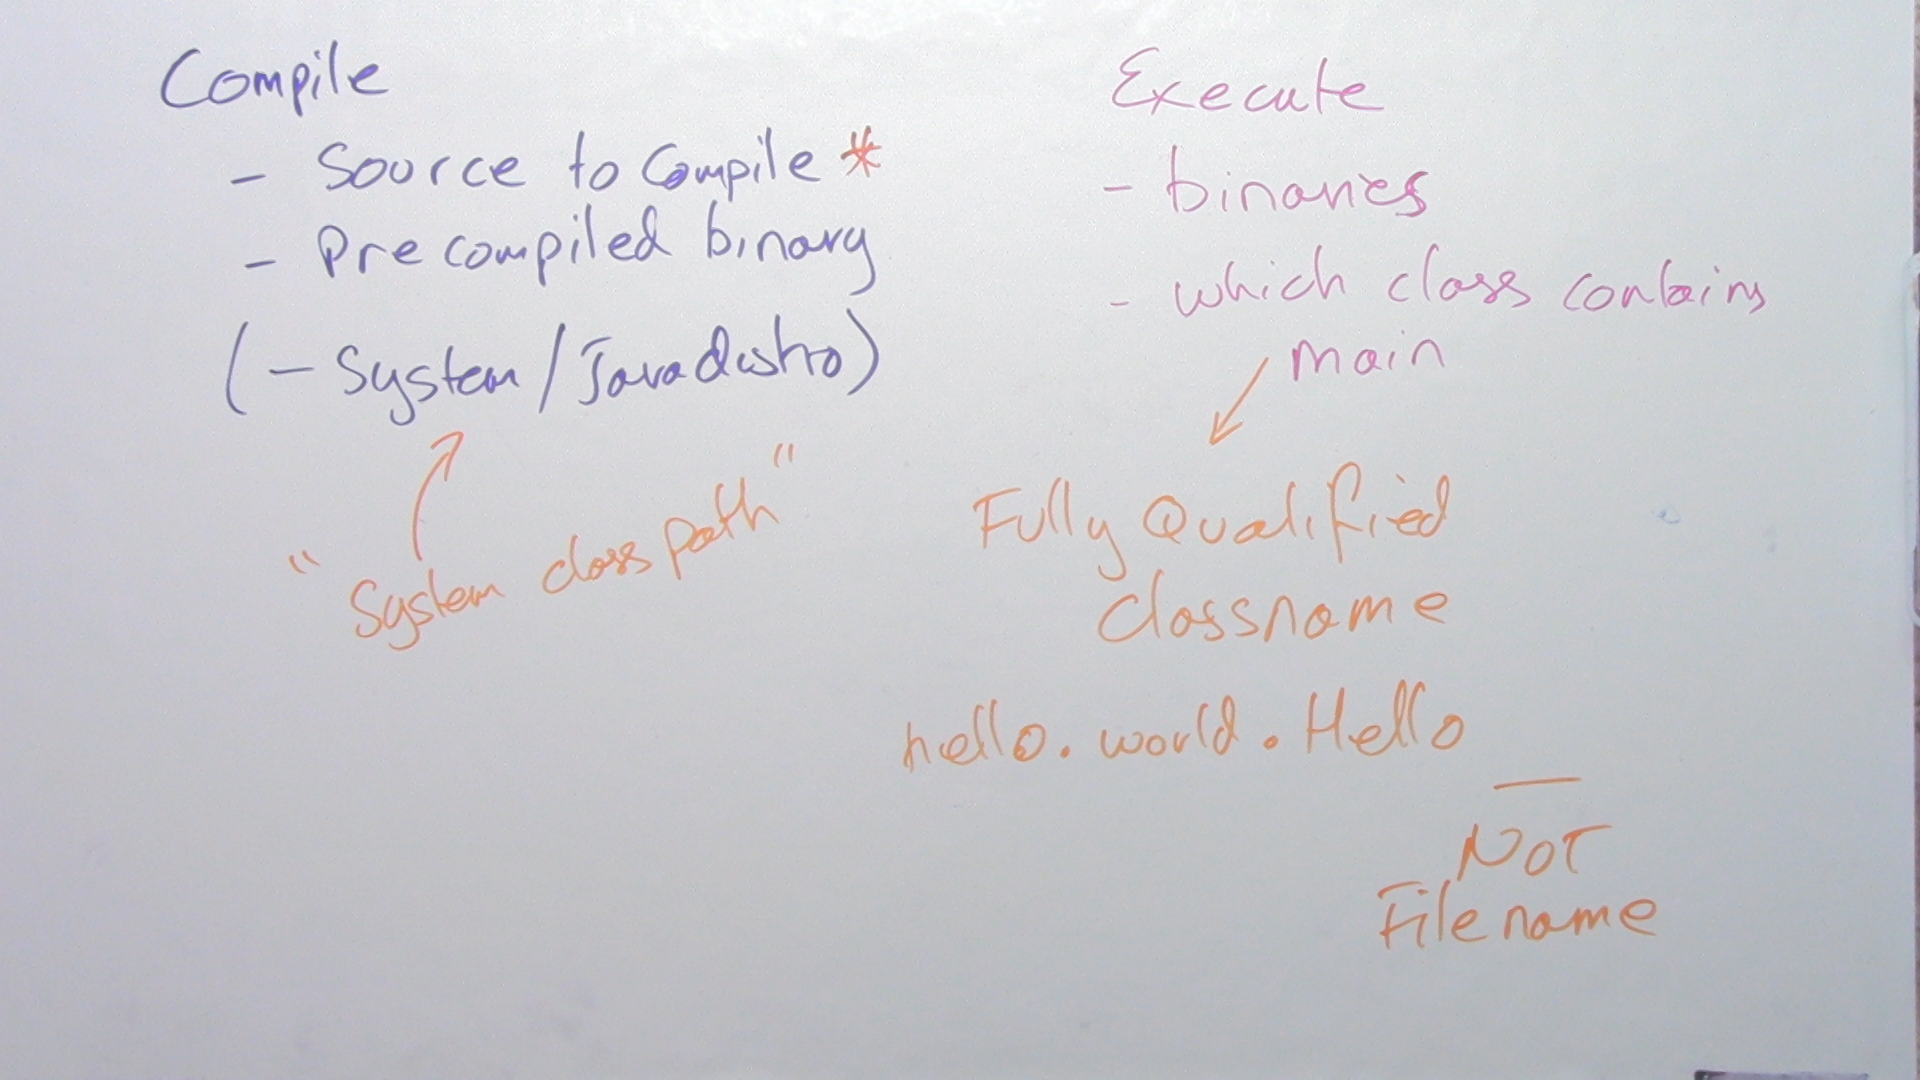 Compile
- Source to Compile *
- Precompiled binary
(- System / Java distro)
"System class path"
Execute
- binaries
- which class contains
main
Fully Qualified
Classname
hello.world.Hello
NOT
Filename